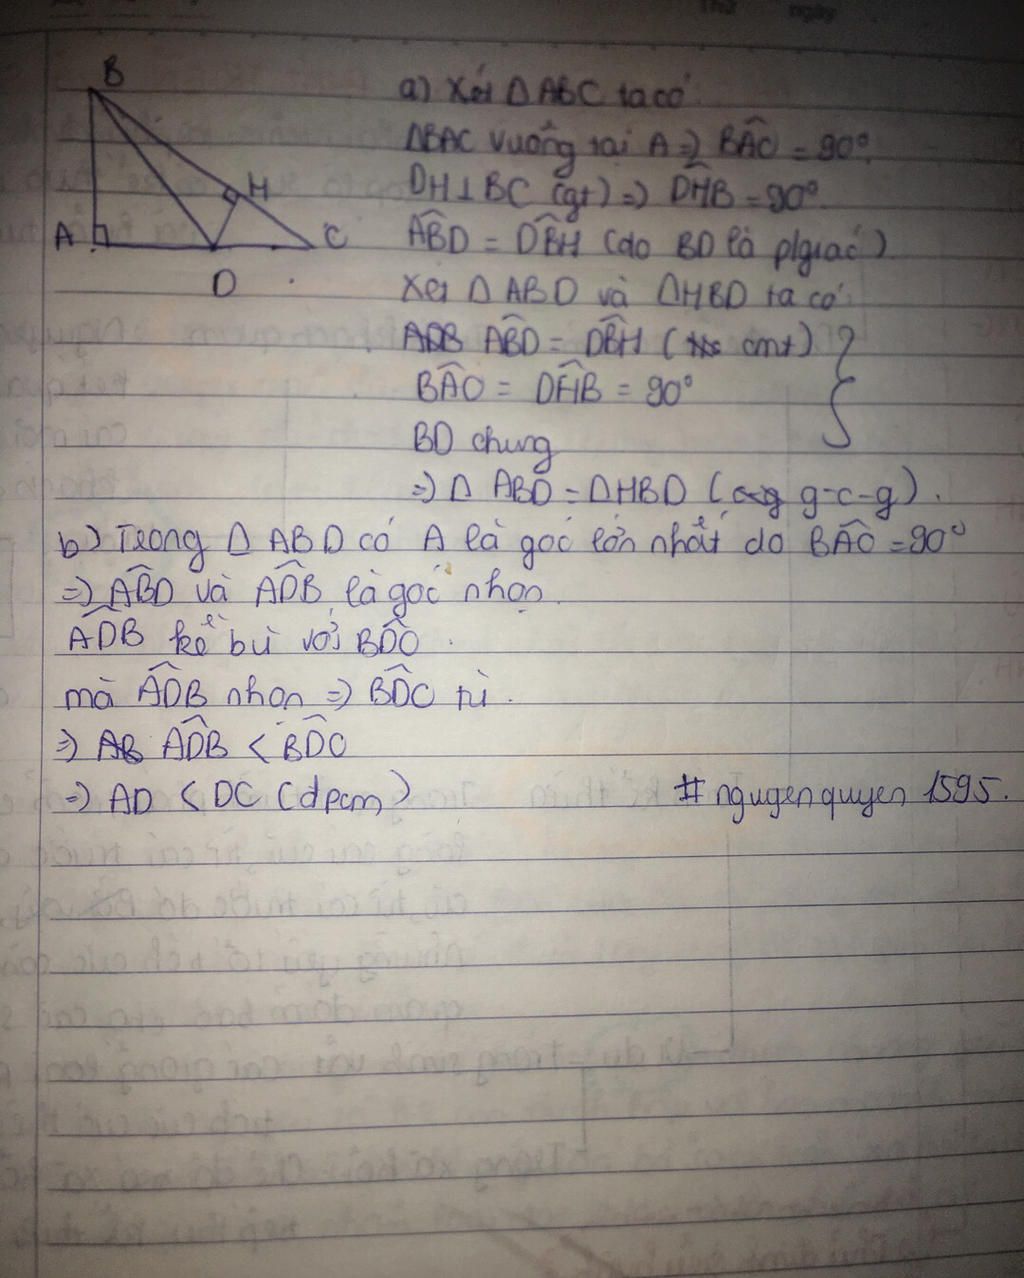 Thứ ngày
B
H
A
C
D
a) Xét Δ ABC ta có
ΔBAC vuông tại A => BÂC = 90°
DH⊥BC (gt) => DĤB = 90°
AB̂D = DB̂H (do BD là p/giác)
Xét Δ ABD và ΔHBD ta có
ADB AB̂D = DB̂H ( cmt)
BÂC = DĤB = 90°
BD chung
=> Δ ABD = ΔHBD ( g-c-g).
b) Trong Δ ABD có A là góc lớn nhất do BÂC = 90°
=> AB̂D và AD̂B là góc nhọn.
AD̂B kề bù với BD̂C.
mà AD̂B nhọn => BD̂C tù.
=> AB AD̂B < BD̂C
=> AD < DC (đpcm) # nguyenquyen 1595.